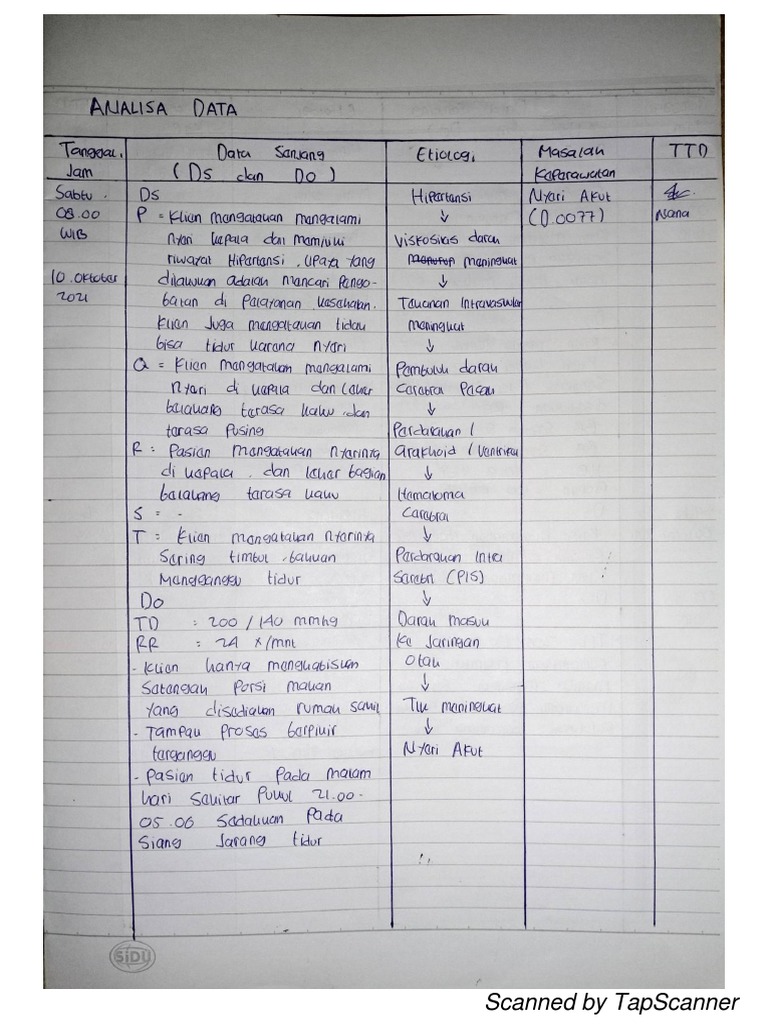 ANALISA DATA
Tanggal, Jam
Data Senjang
(Ds dan Do)
Etiologi
Masalah
Keperawatan
TTD
Sabtu.
08.00
WIB
10. Oktober
2021
Ds
P = Klien mengatakan mengalami
nyeri kepala dan memiliki
riwayat Hipertensi. upaya yang
dilakukan adalah mencari pengo-
batan di pelayanan kesehatan.
Klien juga mengatakan tidak
bisa tidur karena nyeri
Q = Klien mengatakan mengalami
nyeri di kepala dan leher
belakang terasa kaku dan
terasa pusing
R = Pasien mengatakan nyerinya
di kepala. dan leher bagian
belakang terasa kaku
S = -
T = Klien mengatakan nyerinya
sering timbul. bahkan
mengganggu tidur
Do
TD : 200 / 140 mmhg
RR : 24 x/mnt
- Klien hanya menghabiskan
setengah porsi makan
yang disediakan rumah sakit
- Tampak proses berpikir
terganggu
- Pasien tidur pada malam
hari sekitar pukul 21.00-
05.00 sedahkan pada
siang jarang tidur
Hipertensi
↓
Viskositas darah
menurun meningkat
↓
Tekanan Intravaskuler
meningkat
↓
Pembuluh darah
cerebral pecah
↓
Perdarahan /
arakhoid / Ventrikel
↓
Hematoma
Cerebral
↓
Perdarahan Intra
Serebri (PIS)
↓
Darah masuk
ke jaringan
otak
↓
TIK meningkat
↓
Nyeri Akut
Nyeri Akut
(D.0077)
Nana
SiDU
Scanned by TapScanner